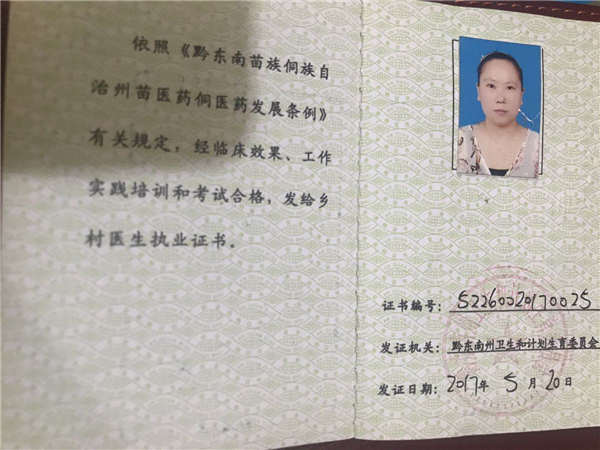 依照《黔东南苗族侗族自
治州苗医药侗医药发展条例》
有关规定，经临床效果、工作
实践培训和考试合格，发给乡
村医生执业证书.
证书编号：52260020170025
发证机关：黔东南州卫生和计划生育委员会
发证日期：2017年 5 月 20日